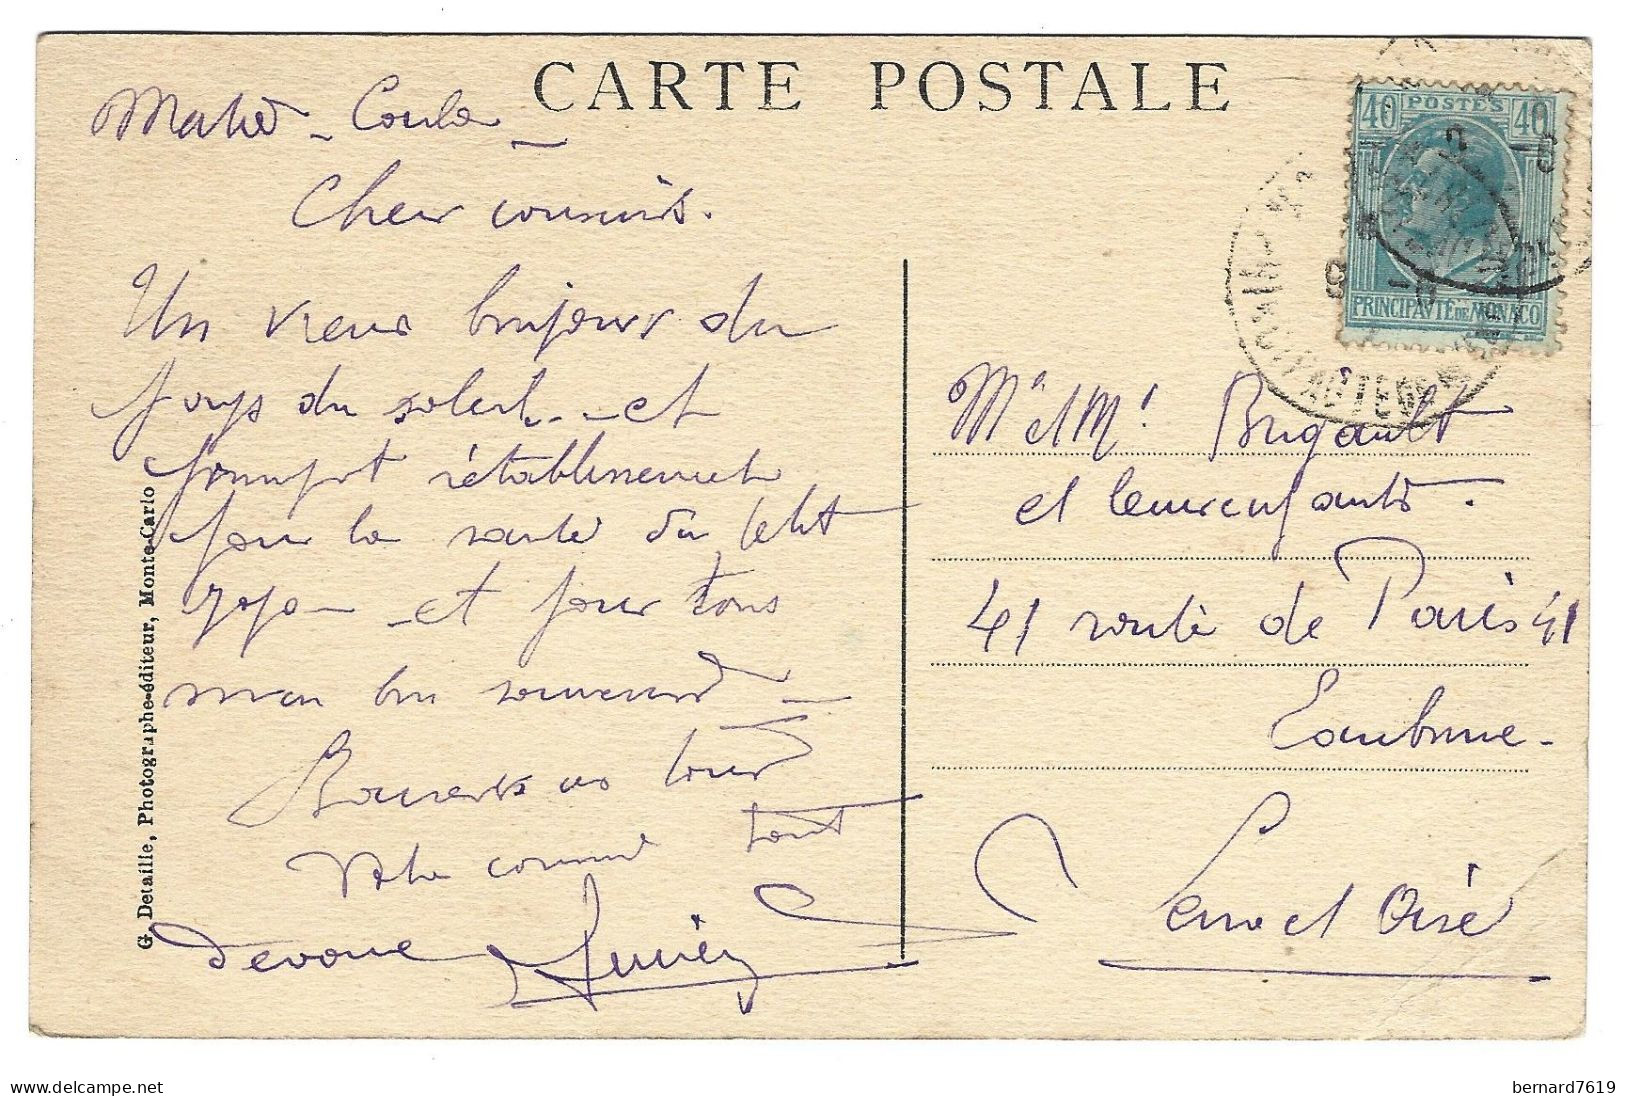 CARTE POSTALE
Monte-Carlo
Cher cousins.
Un vieux bonjour du
pays du soleil - et
prompt rétablissement
pour la santé du petit
et pour tous
mon bon souvenir
Baisers à vous tous
Votre cousin tout
dévoué Lucien
G. Detaille, Photographe-éditeur, Monte-Carlo
40 POSTES 40
PRINCIPAVTÉ DE MONACO
Mr et Mme Brigault
et leurs enfants.
41 route de Paris 41
Eaubonne -
Seine et Oise
bernard7619